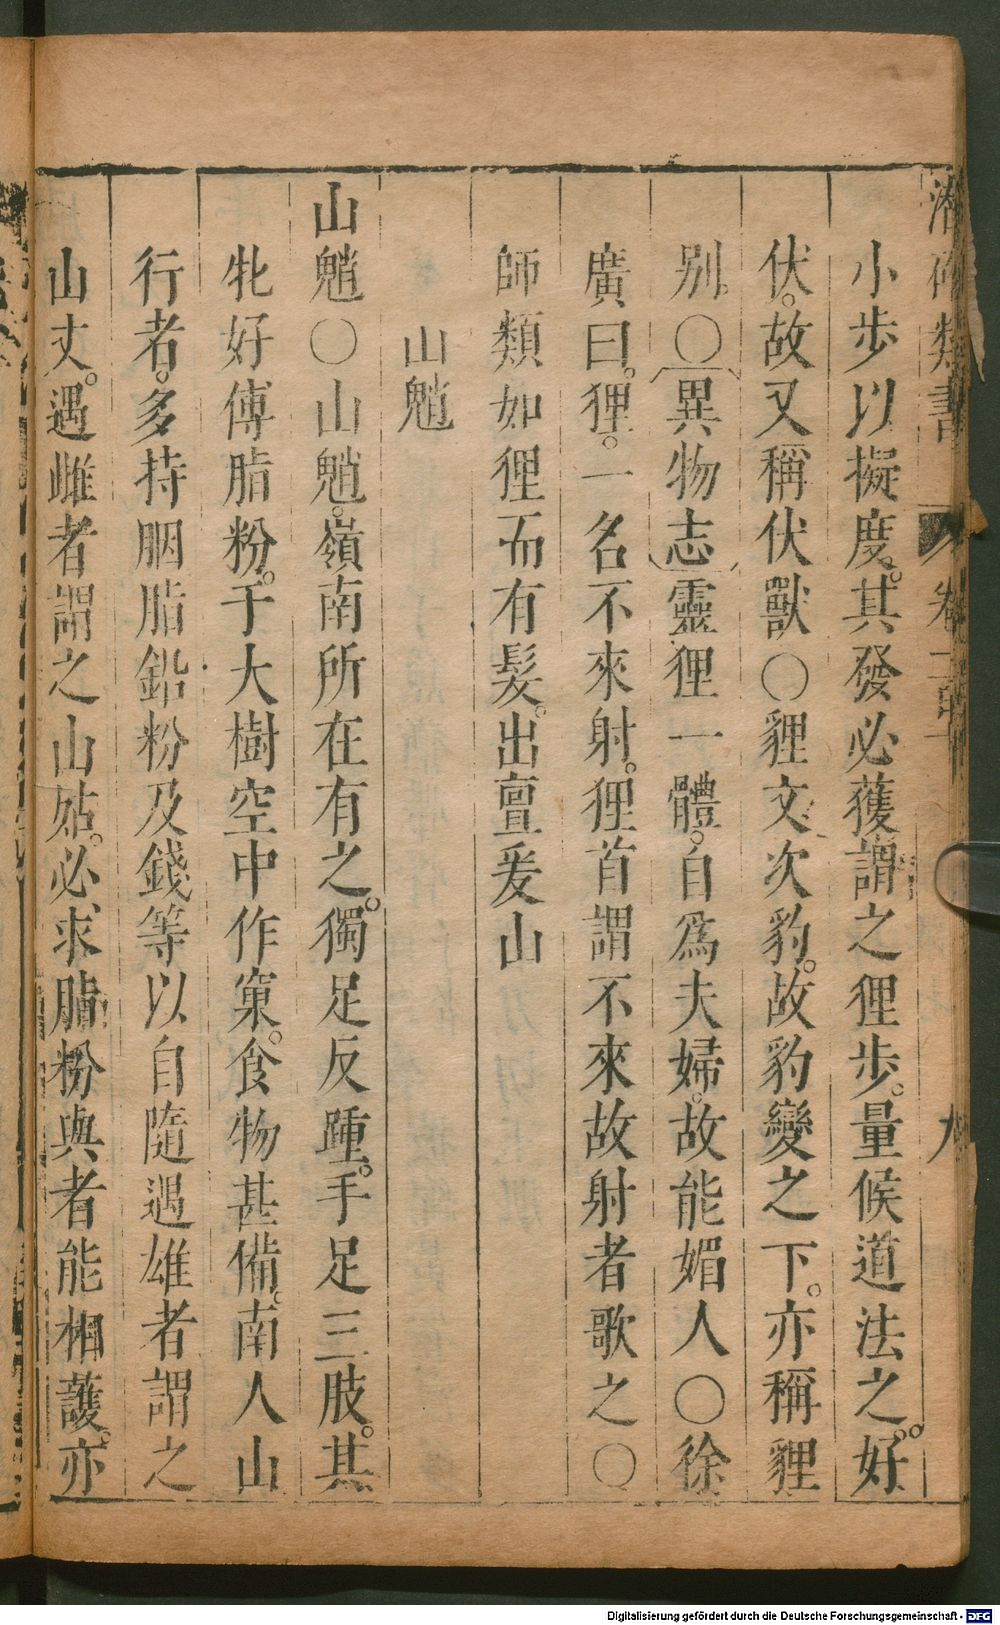 潛確類書 卷一百十 九
小步以擬度。其發必獲謂之狸步。量候道法之。好
伏。故又稱伏獸〇貍文次豹。故豹變之下。亦稱貍
別〇異物志靈狸一體。自爲夫婦。故能媚人〇徐
廣曰。狸。一名不來射。狸首謂不來故射者歌之〇
師類如狸而有髮。出亶爰山
山魈
山魈〇山魈。嶺南所在有之。獨足反踵。手足三肢。其
牝好傅脂粉。于大樹空中作窠。食物甚備。南人山
行者。多持胭脂鉛粉及錢等以自隨遇雄者謂之
山丈。遇雌者謂之山姑。必求脂粉與者能相護。亦
Digitalisierung gefördert durch die Deutsche Forschungsgemeinschaft - DFG